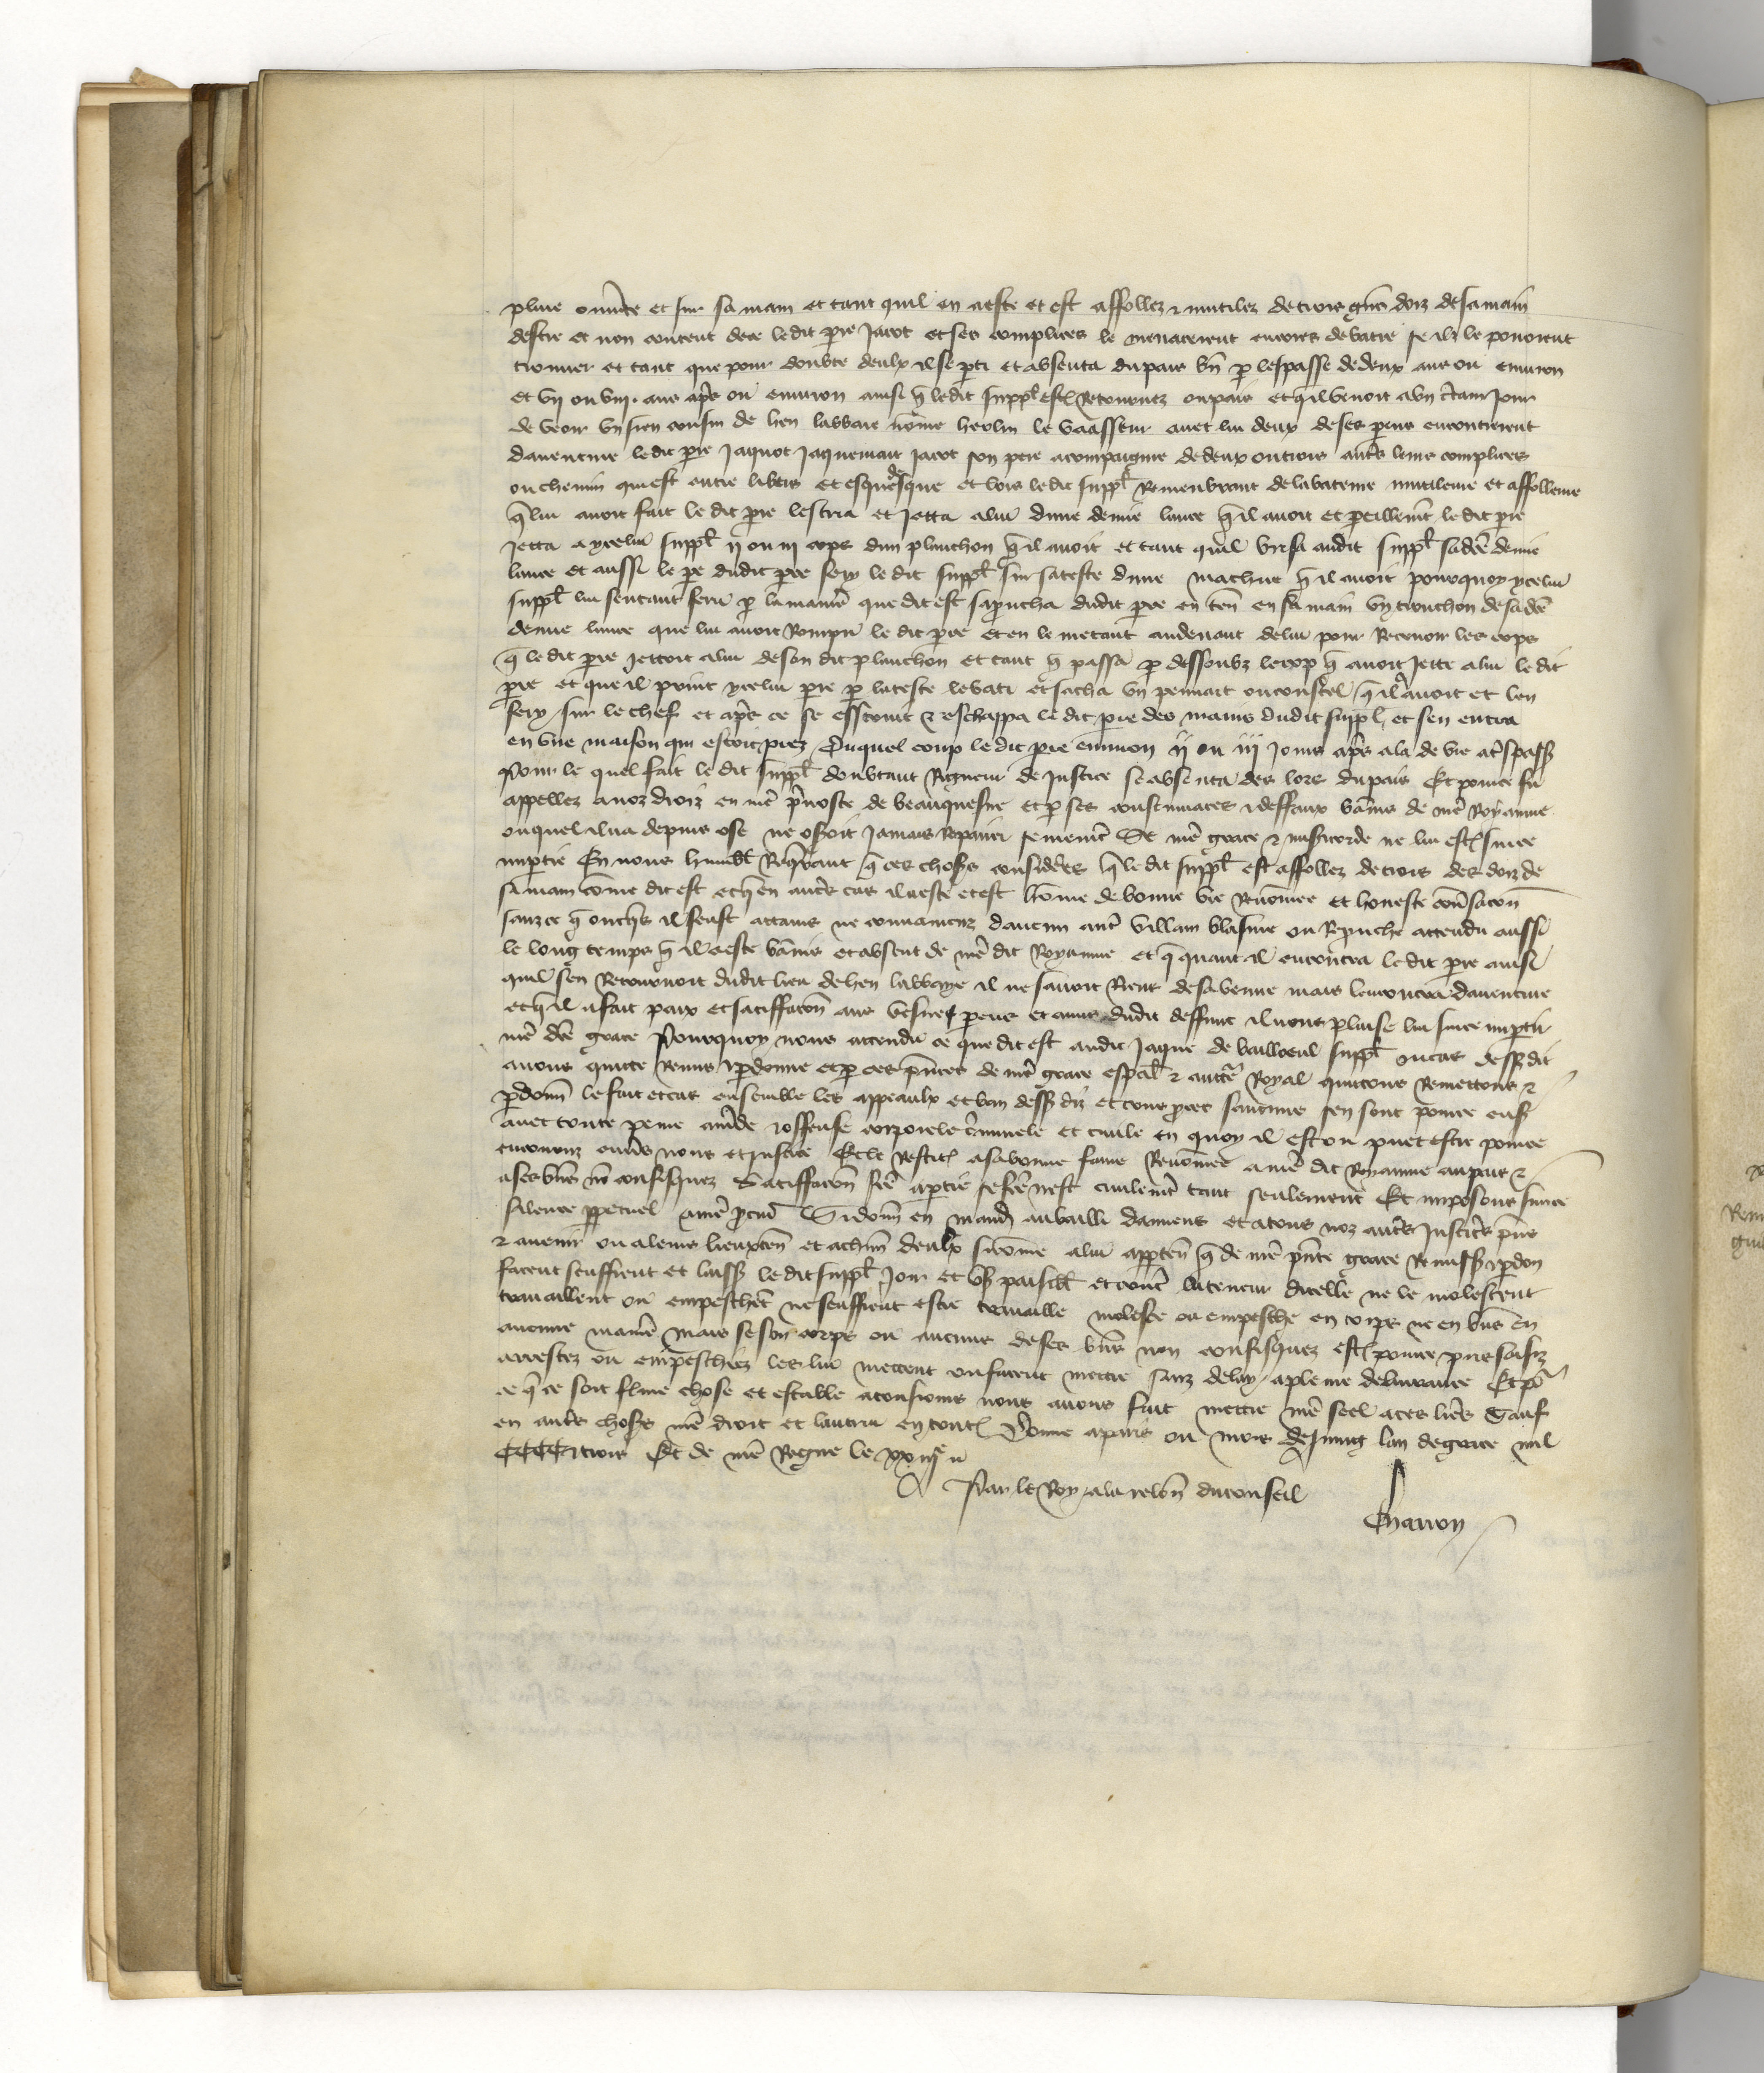 plaie ouverte et sur sa main et tant quil en a este et est affollez et mutilez de trois grans doiz de sa main
destre et non content de ce le dit pierre Jacot et ses complices le menacerent encores de batre se ilz le povoient
trouver et tant que pour doubte deulx il se parti et absenta du pais bien par lespasse de deux ans ou environ
et vij ou viij ans apres ou environ ainsi que le dit suppl estoit retournez ou pais et quil venoit a un certain jour
de veoir un sien cousin de hen labbaie nomme herlin le vaasseur avec lui deux de ses parens encontrerent
daventure le dit pierre Jaquot Jaquemart Jacot son pere acompaigne de deux ou trois autres leurs complices
ou chemin qui est entre et esquerdesque et lors le dit suppl remembrant de la bateure mutileure et affolleure
que lui avoit fait le dit pierre lescria et jetta a lui dune demie lance quil avoit et pareillement le dit pierre
jetta a ycelui suppl ij ou iij cops dun planchon quil avoit et tant quil brisa audit suppl sa dicte demie
lance et aussi le pere dudit pierre fery le dit suppl sur sa teste dune machue quil avoit pourquoy ycelui
suppl lui sentant feru par la maniere que dit est saproucha dudit pierre en tenant en sa main un tronchon de sa dicte
demie lance que lui avoit rompu le dit pierre et en le metant audevant de lui pour recevoir les cops
que le dit pierre jettoit a lui de son dit planchon et tant que passa par dessoubz le cop que avoit jette a lui le dit
pierre et que il print ycelui pierre par la teste le bati et sacha un pennart ou coustel quil avoit et len
fery sur le chef et apres ce se escouit et eschappa le dit pierre des mains dudit suppl et sen entra
en une maison qui estoit prez Duquel coup le dit pierre environ ij ou iij jours apres ala de vie a trespass
Pour le quel fait le dit suppl doubtant rigueur de justice se absenta des lors du pais Et pource fu
appellez a noz droiz en nostre prevoste de beauquesne et par ses contumaces et deffaux bannis de nostre royaume
ouquel il na depuis ose ne oseroit jamais repairer seurement Se nostre grace et misericorde ne lui estoit sur ce
impartie En nous humblement requerant que ces choses considerees que le dit suppl est affollez de trois des doiz de
sa main comme dit est et quen autres cas il a este et est homme de bonne vie renommee et honeste conversacion
sanz ce que onques il feust attains ne convaincuz daucun autre villain blasme ou reproche attendu aussi
le long temps quil a este bannis et absent de nostre dit royaume et que quant il encontra le dit pierre ainsi
quil sen retournoit dudit lieu de hen labbaye il ne savoit riens de sa venue mais lencontra daventure
et quil a fait paix et satiffacion aus vesves parens et amis dudit deffunct il nous plaise lui sur ce impartir
nostre dicte grace Pourquoy nous attendu ce que dit est audit Jaque de bailloeul suppl ou cas dessusdit
avons quitte remis et pardonne et par ces presentes de nostre grace especial et auctorite royal quittons remettons et
pardonnons le fait et cas ensemble les appeaulx et ban dessus diz et tous proces saucuns sen sont pource ensuis
avec toute peine amende et offense corporele criminele et civile en quoy il est ou puet estre pource
encouruz envers nous et justice Et le restituons a sa bonne fame renommee a nostre dit royaume au pais et
a ses biens non confisquez Satiffacion faite a partie se faite nest civilement tant seulement Et imposons sur ce
silence perpetuel a nostre procureur Si donnons en mandement au bailli damiens et a tous noz autres justiciers presens
et avenir ou a leurs lieuxtenans et a chacun deulx si comme a lui appartendra que de nostre presente grace remission et pardon
facent seuffrent et laissent le dit suppl joir et user paisiblement et contre la teneur dicelle ne le molestent
travaillent ou empeschent ne seuffrent estre travaille moleste ou empesche en corps ne en biens en
aucune maniere mais se son corps ou aucuns de ses biens non confisquez estoient pource pris saisiz
arrestez ou empeschiez les lui mettent ou facent mettre sanz delay a pleine delivrance Et pour
ce que ce soit ferme chose et estable a tousjours nous avons fait mettre nostre seel a ces lettres Sauf
en autres choses nostre droit et lautrui en toutes Donne a paris ou mois de juing lan de grace mil
CCCC et trois Et de nostre regne le xxiije
Par le Roy a la relacion du conseil
Charron